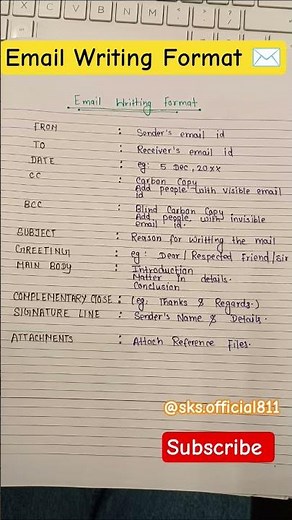 Email Writing Format ✉️
Email Writting Format
FROM : Sender's email id
TO : Receiver's email id
DATE : eg: 5 Dec, 20xx
CC : Carbon Copy
Add people with visible email
id
BCC : Blind Carbon Copy
Add people with invisible
email id.
SUBJECT : Reason for writting the mail
GREETING : eg: Dear / Respected Friend / Sir
MAIN BODY : Introduction
Matter in details.
Conclusion
COMPLEMENTARY CLOSE : (eg. Thanks & Regards.)
SIGNATURE LINE : Sender's Name & Details.
ATTACHMENTS : Attach Reference Files.
@sks.official811
Subscribe